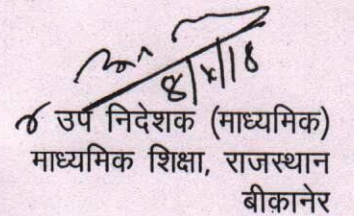 8/x/18
उप निदेशक (माध्यमिक)
माध्यमिक शिक्षा, राजस्थान
बीकानेर